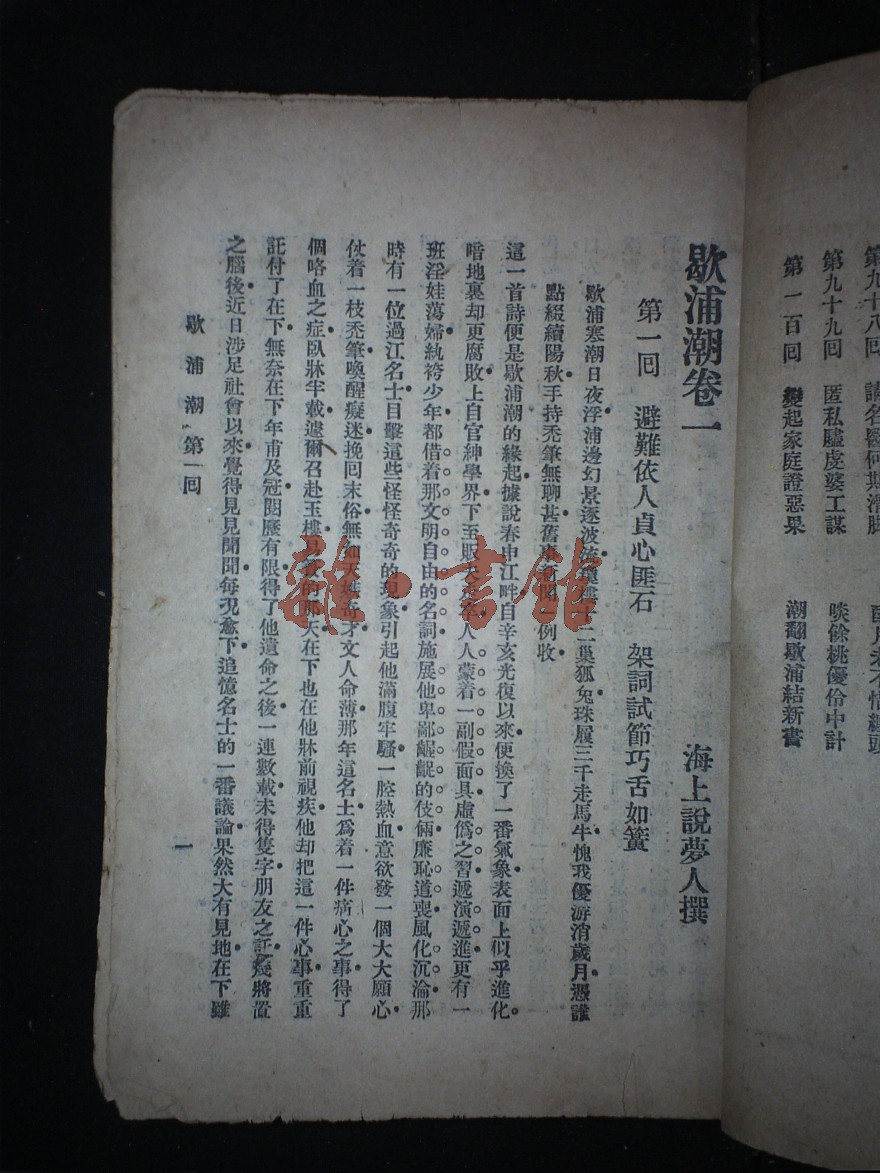 第九十九回　匿私臚虔婆工謀　啖餘桃優伶中計
第一百回　變起家庭證惡果　潮翻歇浦結新書
歇浦潮卷一　海上說夢人撰
第一回　避難依人貞心匪石　架詞試節巧舌如簧
歇浦寒潮日夜浮浦邊幻景逐波流瓊樓十二巢狐兔珠履三千走馬牛愧我優游消歲月憑誰
點綴續陽秋手持禿筆無聊甚舊事新聞一例收
這一首詩便是歇浦潮的緣起據說春申江畔自辛亥光復以來便換了一番氣象表面上似乎進化。
暗地裏却更腐敗上自官紳學界下至販夫走卒人人蒙着一副假面具虛僞之習遞演遞進更有一
班淫娃蕩婦紈袴少年都借着那文明自由的名詞施展他卑鄙齷齪的伎倆廉恥道喪風化沉淪那
時有一位過江名士目擊這些怪怪奇奇的現象引起他滿腹牢騷一腔熱血意欲發一個大大願心
仗着一枝禿筆喚醒癡迷挽回末俗無如天妬奇才文人命薄那年這名士爲着一件痛心之事得了
個咯血之症臥牀半載遽爾召赴玉樓易簀的那天在下也在他牀前視疾他却把這一件心事重重
託付了在下無奈在下年甫及冠閱歷有限得了他遺命之後一連數載未得隻字朋友之託幾將置
之腦後近日涉足社會以來覺得見見聞聞每況愈下追憶名士的一番議論果然大有見地在下雖
歇浦潮　第一回　一
雜·書館